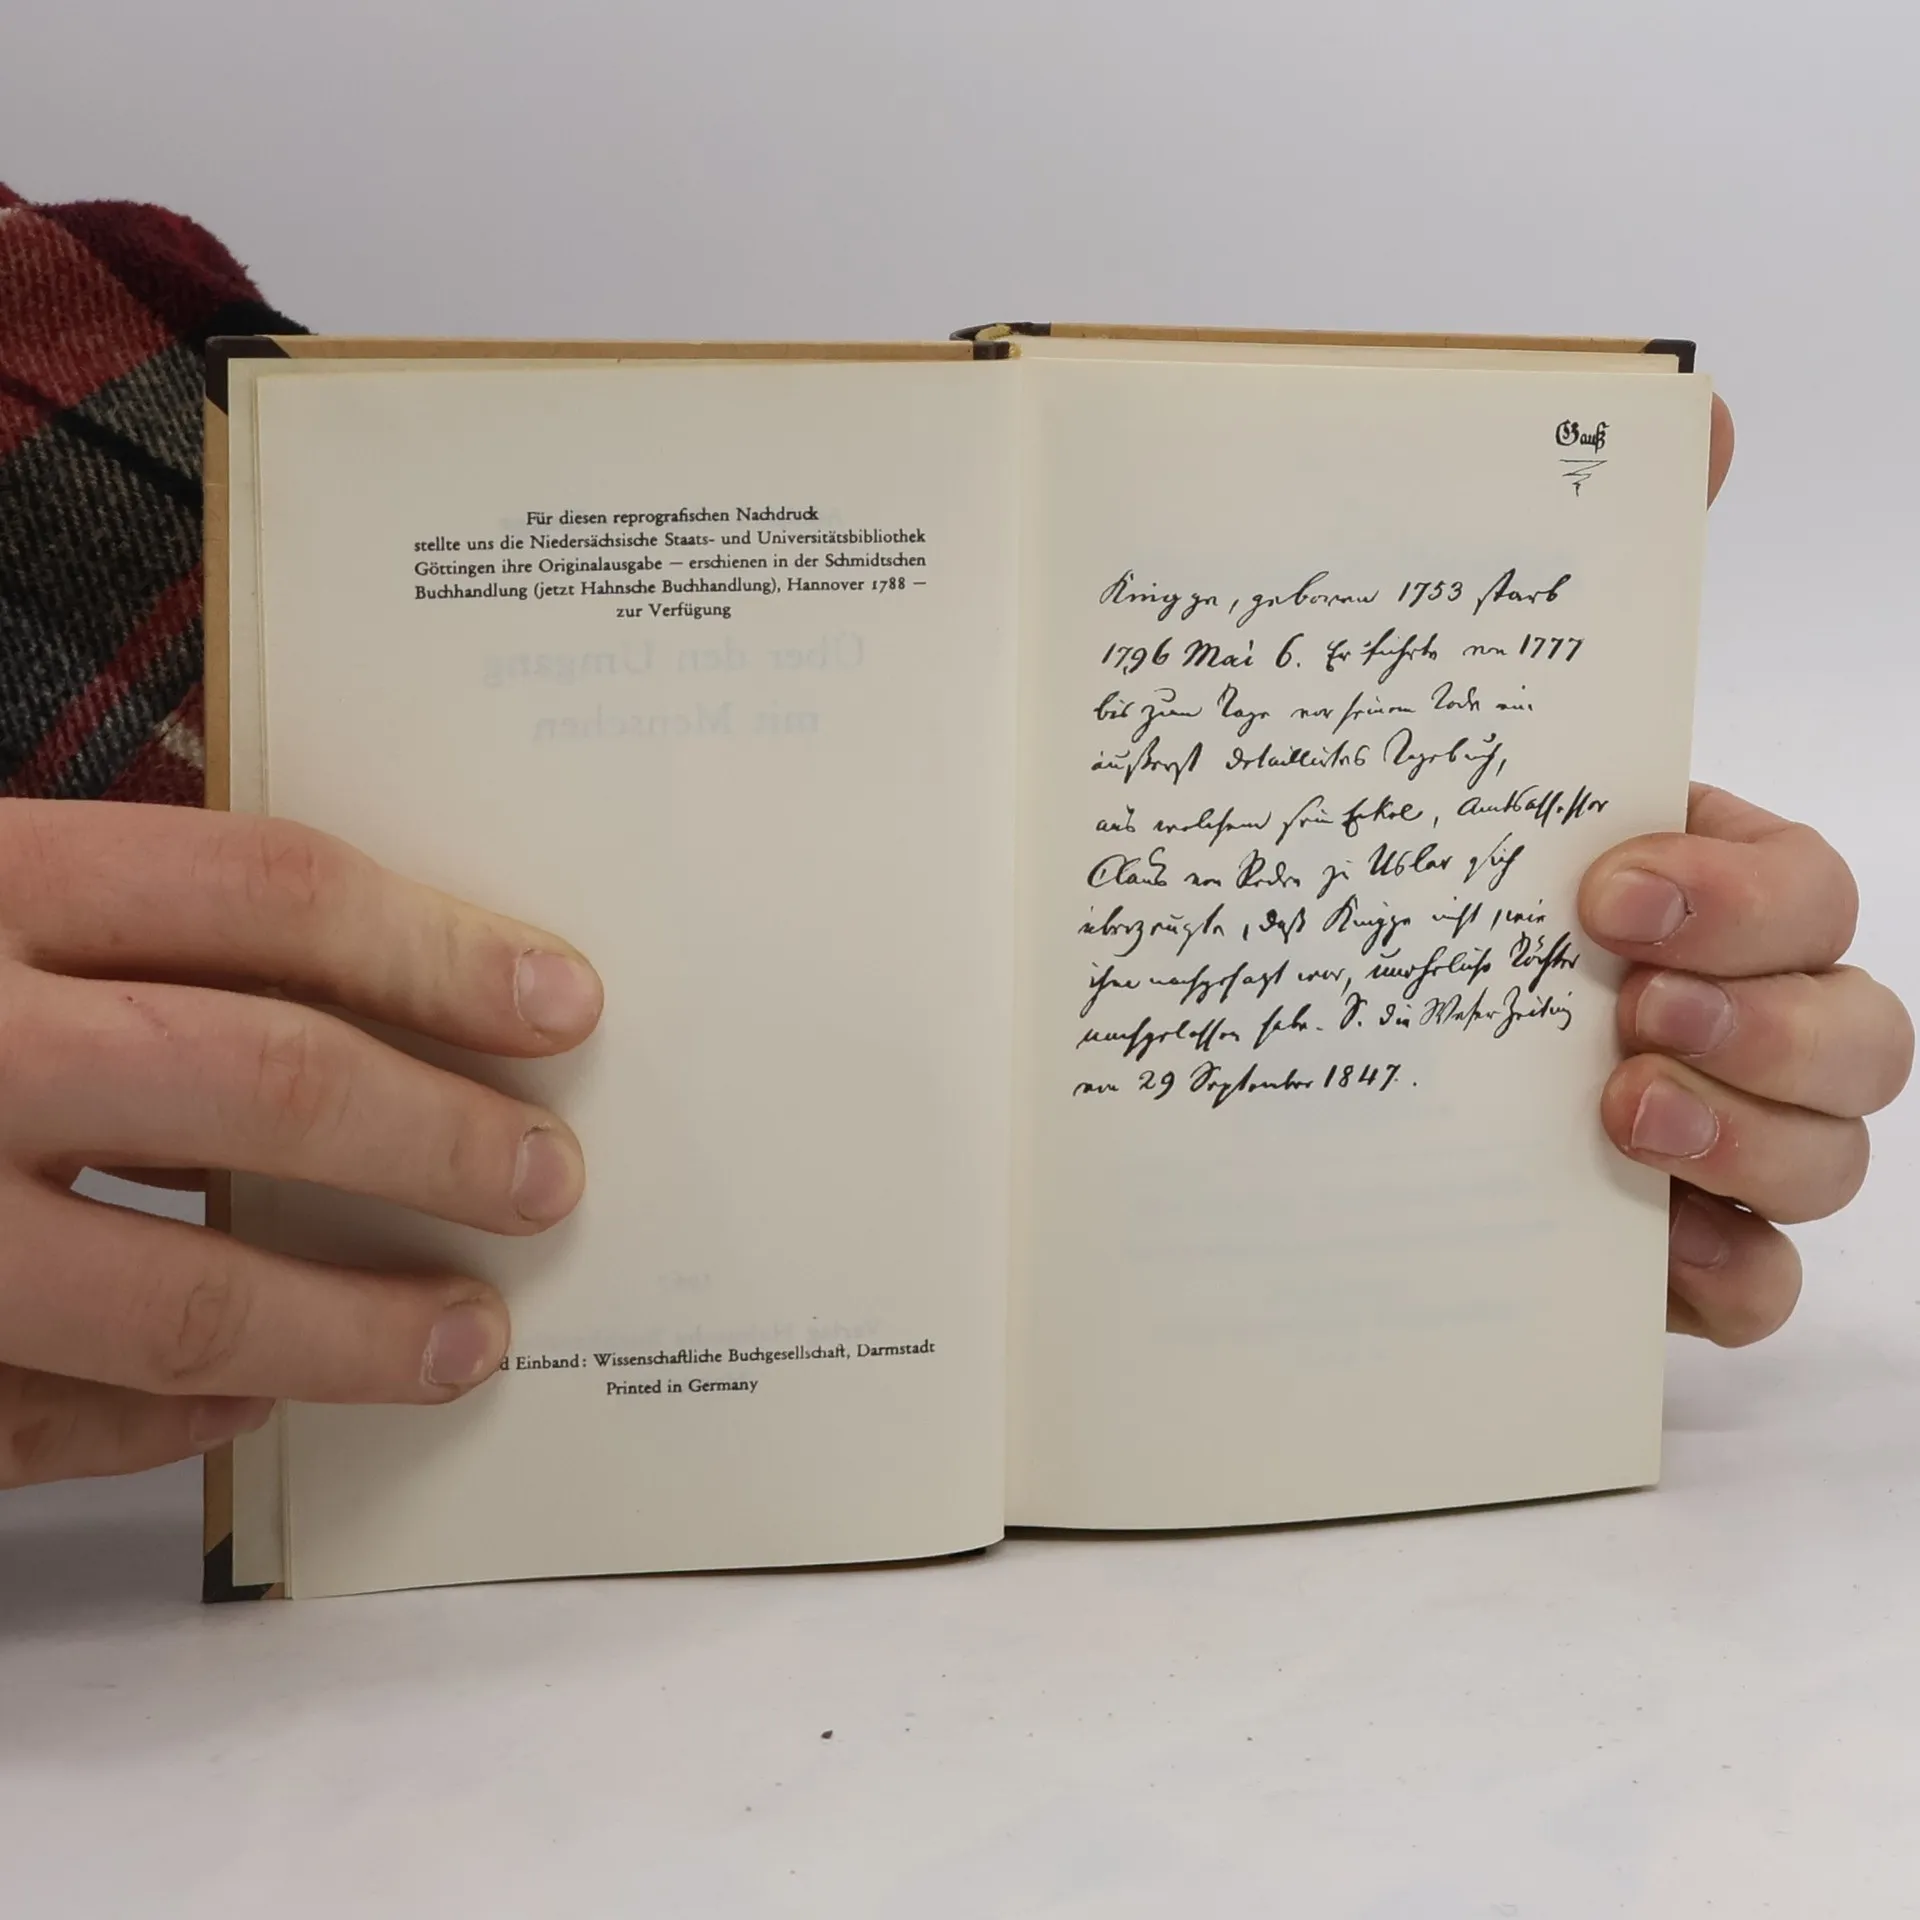 Für diesen reprografischen Nachdruck
stellte uns die Niedersächsische Staats- und Universitätsbibliothek
Göttingen ihre Originalausgabe — erschienen in der Schmidtschen
Buchhandlung (jetzt Hahnsche Buchhandlung), Hannover 1788 —
zur Verfügung
d Einband: Wissenschaftliche Buchgesellschaft, Darmstadt
Printed in Germany
Gauß
Knigge, geboren 1753 starb
1796 Mai 6. Er führte von 1777
bis zum Tage vor seinem Tode ein
äußerst detaillirtes Tagebuch,
aus welchem sein Enkel, Amtsassessor
Claus von Reden zu Uslar sich
überzeugte, daß Knigge nicht, wie
ihm nachgesagt war, uneheliche Töchter
nachgelassen habe. S. die Weser Zeitung
vom 29 September 1847.